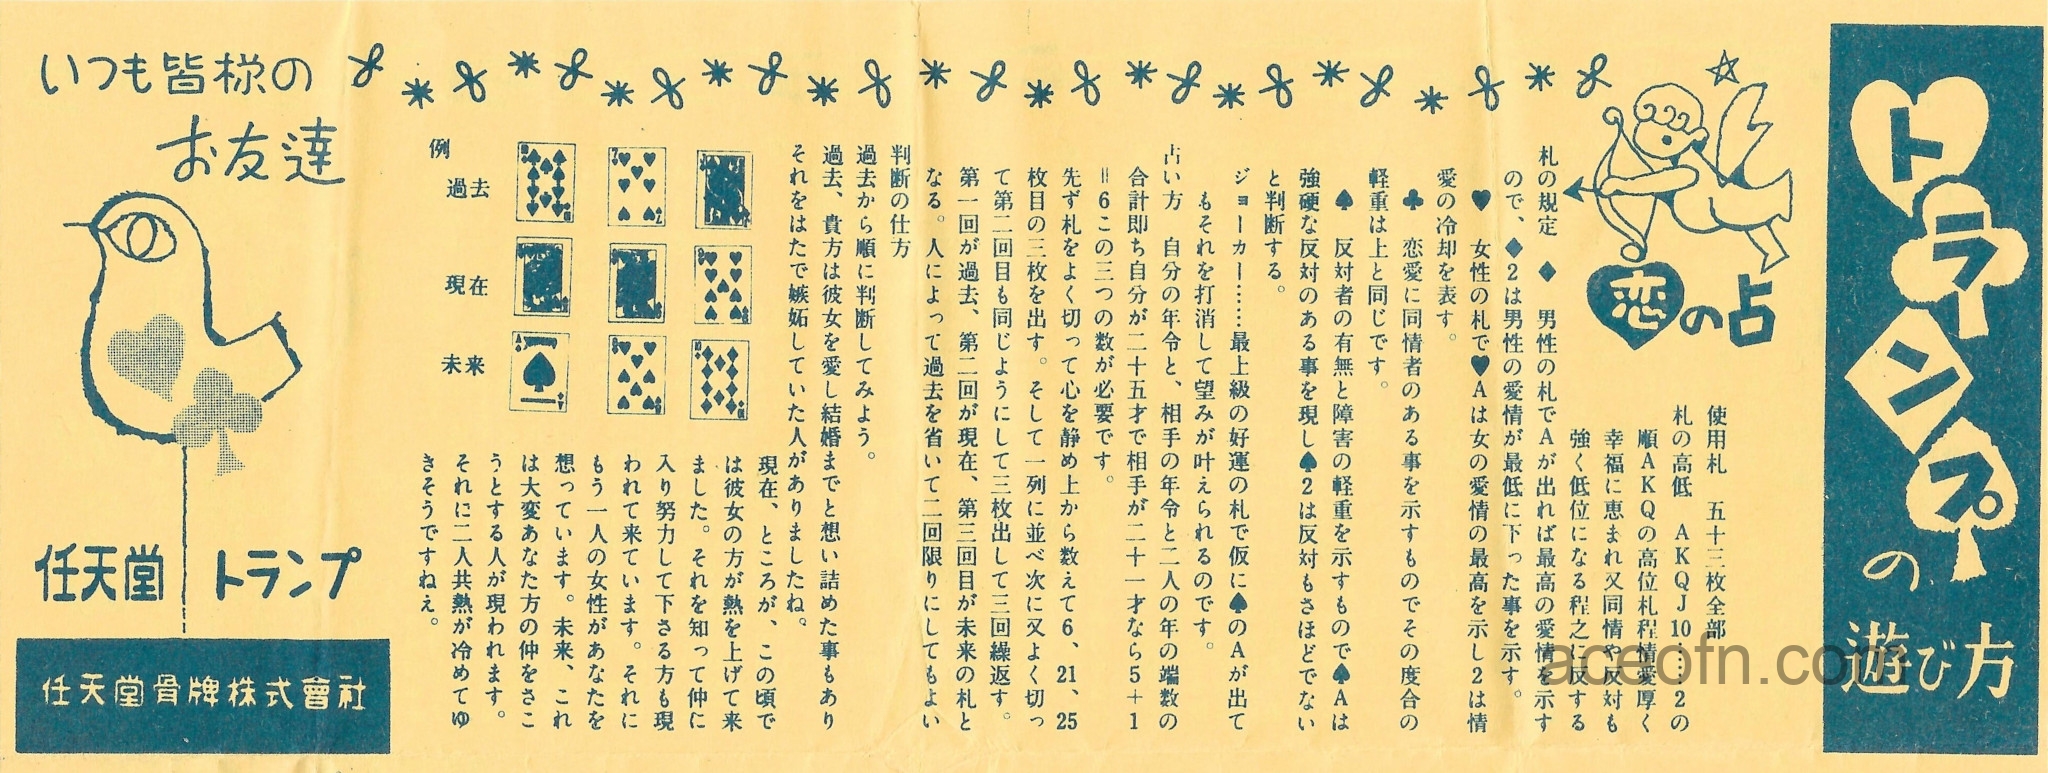 トランプの遊び方
恋の占
使用札　五十三枚全部
札の高低　AKQJ10……2の
順AKQの高位札程情愛厚く
幸福に恵まれ又同情や反対も
強く低位になる程之に反する
札の規定　♦　男性の札でAが出れば最高の愛情を示す
ので、♦2は男性の愛情が最低に下った事を示す。
♥　女性の札で♥Aは女の愛情の最高を示し2は情
愛の冷却を表す。
♣　恋愛に同情者のある事を示すものでその度合の
軽重は上と同じです。
♠　反対者の有無と障害の軽重を示すもので♠Aは
強硬な反対のある事を現し♠2は反対もさほどでない
と判断する。
ジョーカー……最上級の好運の札で仮に♠のAが出て
もそれを打消して望みが叶えられるのです。
占い方　自分の年令と、相手の年令と二人の年の端数の
合計即ち自分が二十五才で相手が二十一才なら5+1
=6この三つの数が必要です。
先ず札をよく切って心を静め上から数えて6、21、25
枚目の三枚を出す。そして一列に並べ次に又よく切っ
て第二回目も同じようにして三枚出して三回繰返す。
第一回が過去、第二回が現在、第三回目が未来の札と
なる。人によって過去を省いて二回限りにしてもよい
判断の仕方
過去から順に判断してみよう。
過去、貴方は彼女を愛し結婚までと想い詰めた事もあり
それをはたで嫉妬していた人がありましたね。
現在、ところが、この頃で
は彼女の方が熱を上げて来
ました。それを知って仲に
入り努力して下さる方も現
われて来ています。それに
もう一人の女性があなたを
想っています。未来、これ
は大変あなた方の仲をさこ
うとする人が現われます。
それに二人共熱が冷めてゆ
きそうですねぇ。
例
過去
現在
未来
いつも皆様の
お友達
任天堂 トランプ
任天堂骨牌株式會社
aceofn.com